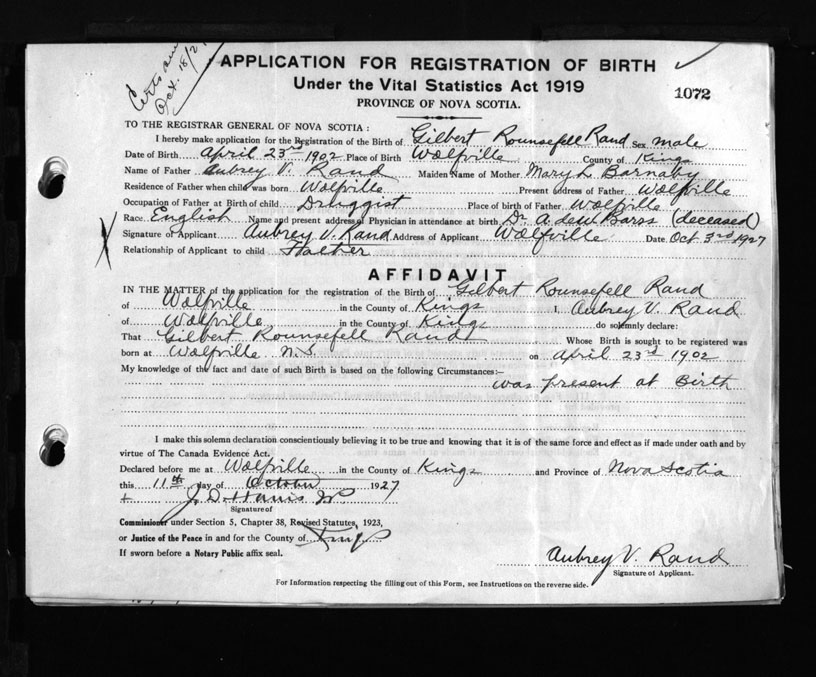 Oct. 18/2
APPLICATION FOR REGISTRATION OF BIRTH
Under the Vital Statistics Act 1919
1072
PROVINCE OF NOVA SCOTIA.
TO THE REGISTRAR GENERAL OF NOVA SCOTIA :
I hereby make application for the Registration of the Birth of Gilbert Rounsefell Rand Sex male
Date of Birth April 23rd 1902 Place of Birth Wolfville County of Kings
Name of Father Aubrey V. Rand Maiden Name of Mother Mary L. Barnaby
Residence of Father when child was born Wolfville Present address of Father Wolfville
Occupation of Father at Birth of child Druggist Place of birth of Father Wolfville
Race. English Name and present address of Physician in attendance at birth Dr. A. deW. Barss (deceased)
Signature of Applicant Aubrey V. Rand Address of Applicant Wolfville Date Oct 3rd 1927
Relationship of Applicant to child Father
AFFIDAVIT
IN THE MATTER of the application for the registration of the Birth of Gilbert Rounsefell Rand
of Wolfville in the County of Kings I, Aubrey V. Rand
of Wolfville in the County of Kings do solemnly declare:
That Gilbert Rounsefell Rand Whose Birth is sought to be registered was
born at Wolfville N.S. on April 23rd 1902
My knowledge of the fact and date of such Birth is based on the following Circumstances:—
was present at Birth
I make this solemn declaration conscientiously believing it to be true and knowing that it is of the same force and effect as if made under oath and by
virtue of The Canada Evidence Act.
Declared before me at Wolfville in the County of Kings and Province of Nova Scotia
this 11th day of October 1927
+ J. D. Harris J.P.
Signature of
Commissioner under Section 5, Chapter 38, Revised Statutes, 1923,
or Justice of the Peace in and for the County of Kings
If sworn before a Notary Public affix seal.
Aubrey V. Rand
Signature of Applicant.
For Information respecting the filling out of this Form, see Instructions on the reverse side.